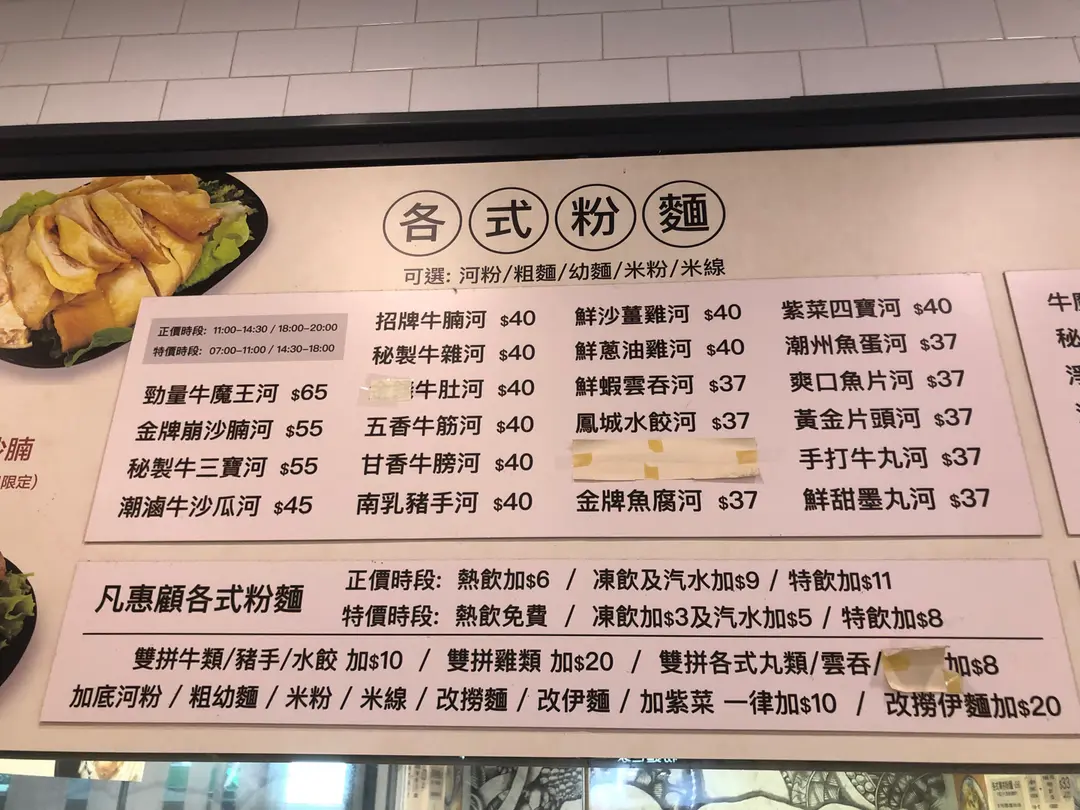 各式粉麵
可選: 河粉/粗麵/幼麵/米粉/米線
正價時段: 11:00-14:30 / 18:00-20:00
特價時段: 07:00-11:00 / 14:30-18:00
勁量牛魔王河 $65
金牌崩沙腩河 $55
秘製牛三寶河 $55
潮滷牛沙瓜河 $45
招牌牛腩河 $40
秘製牛雜河 $40
牛肚河 $40
五香牛筋河 $40
甘香牛膀河 $40
南乳豬手河 $40
鮮沙薑雞河 $40
鮮蔥油雞河 $40
鮮蝦雲吞河 $37
鳳城水餃河 $37
金牌魚腐河 $37
紫菜四寶河 $40
潮州魚蛋河 $37
爽口魚片河 $37
黃金片頭河 $37
手打牛丸河 $37
鮮甜墨丸河 $37
凡惠顧各式粉麵
正價時段: 熱飲加$6 / 凍飲及汽水加$9 / 特飲加$11
特價時段: 熱飲免費 / 凍飲加$3及汽水加$5 / 特飲加$8
雙拼牛類/豬手/水餃 加$10 / 雙拼雞類 加$20 / 雙拼各式丸類/雲吞/ 加$8
加底河粉 / 粗幼麵 / 米粉 / 米線 / 改撈麵 / 改伊麵 / 加紫菜 一律加$10 / 改撈伊麵加$20
腩
限定)